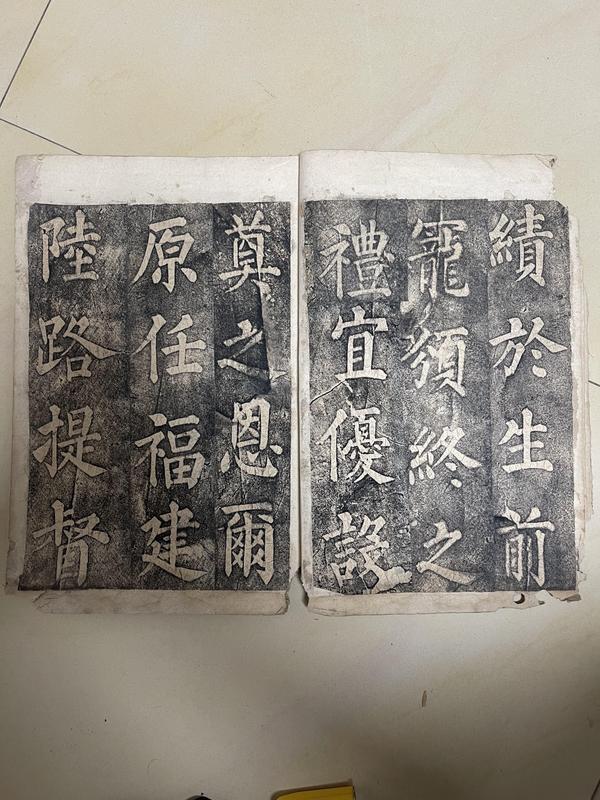 績於生前
寵頒終之
禮宜優設
奠之恩爾
原任福建
陸路提督